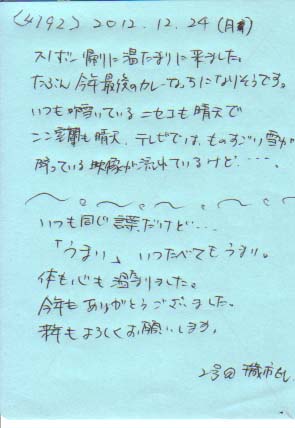 (4192) 2012.12.24(月)
スノボー帰りに温たまりに来ました。
たぶん今年最後のカレーなっちになりそうです。
いつも吹雪いているニセコも晴天で
ここ室蘭も晴天、テレビでは、ものすごい雪が
降っている映像が流れているけど・・・。
いつも同じ言葉だけど・・・
「うまい」いつたべてもうまい。
体も心も温まりました。
今年もありがとうございました。
来年もよろしくお願いします。
2号@